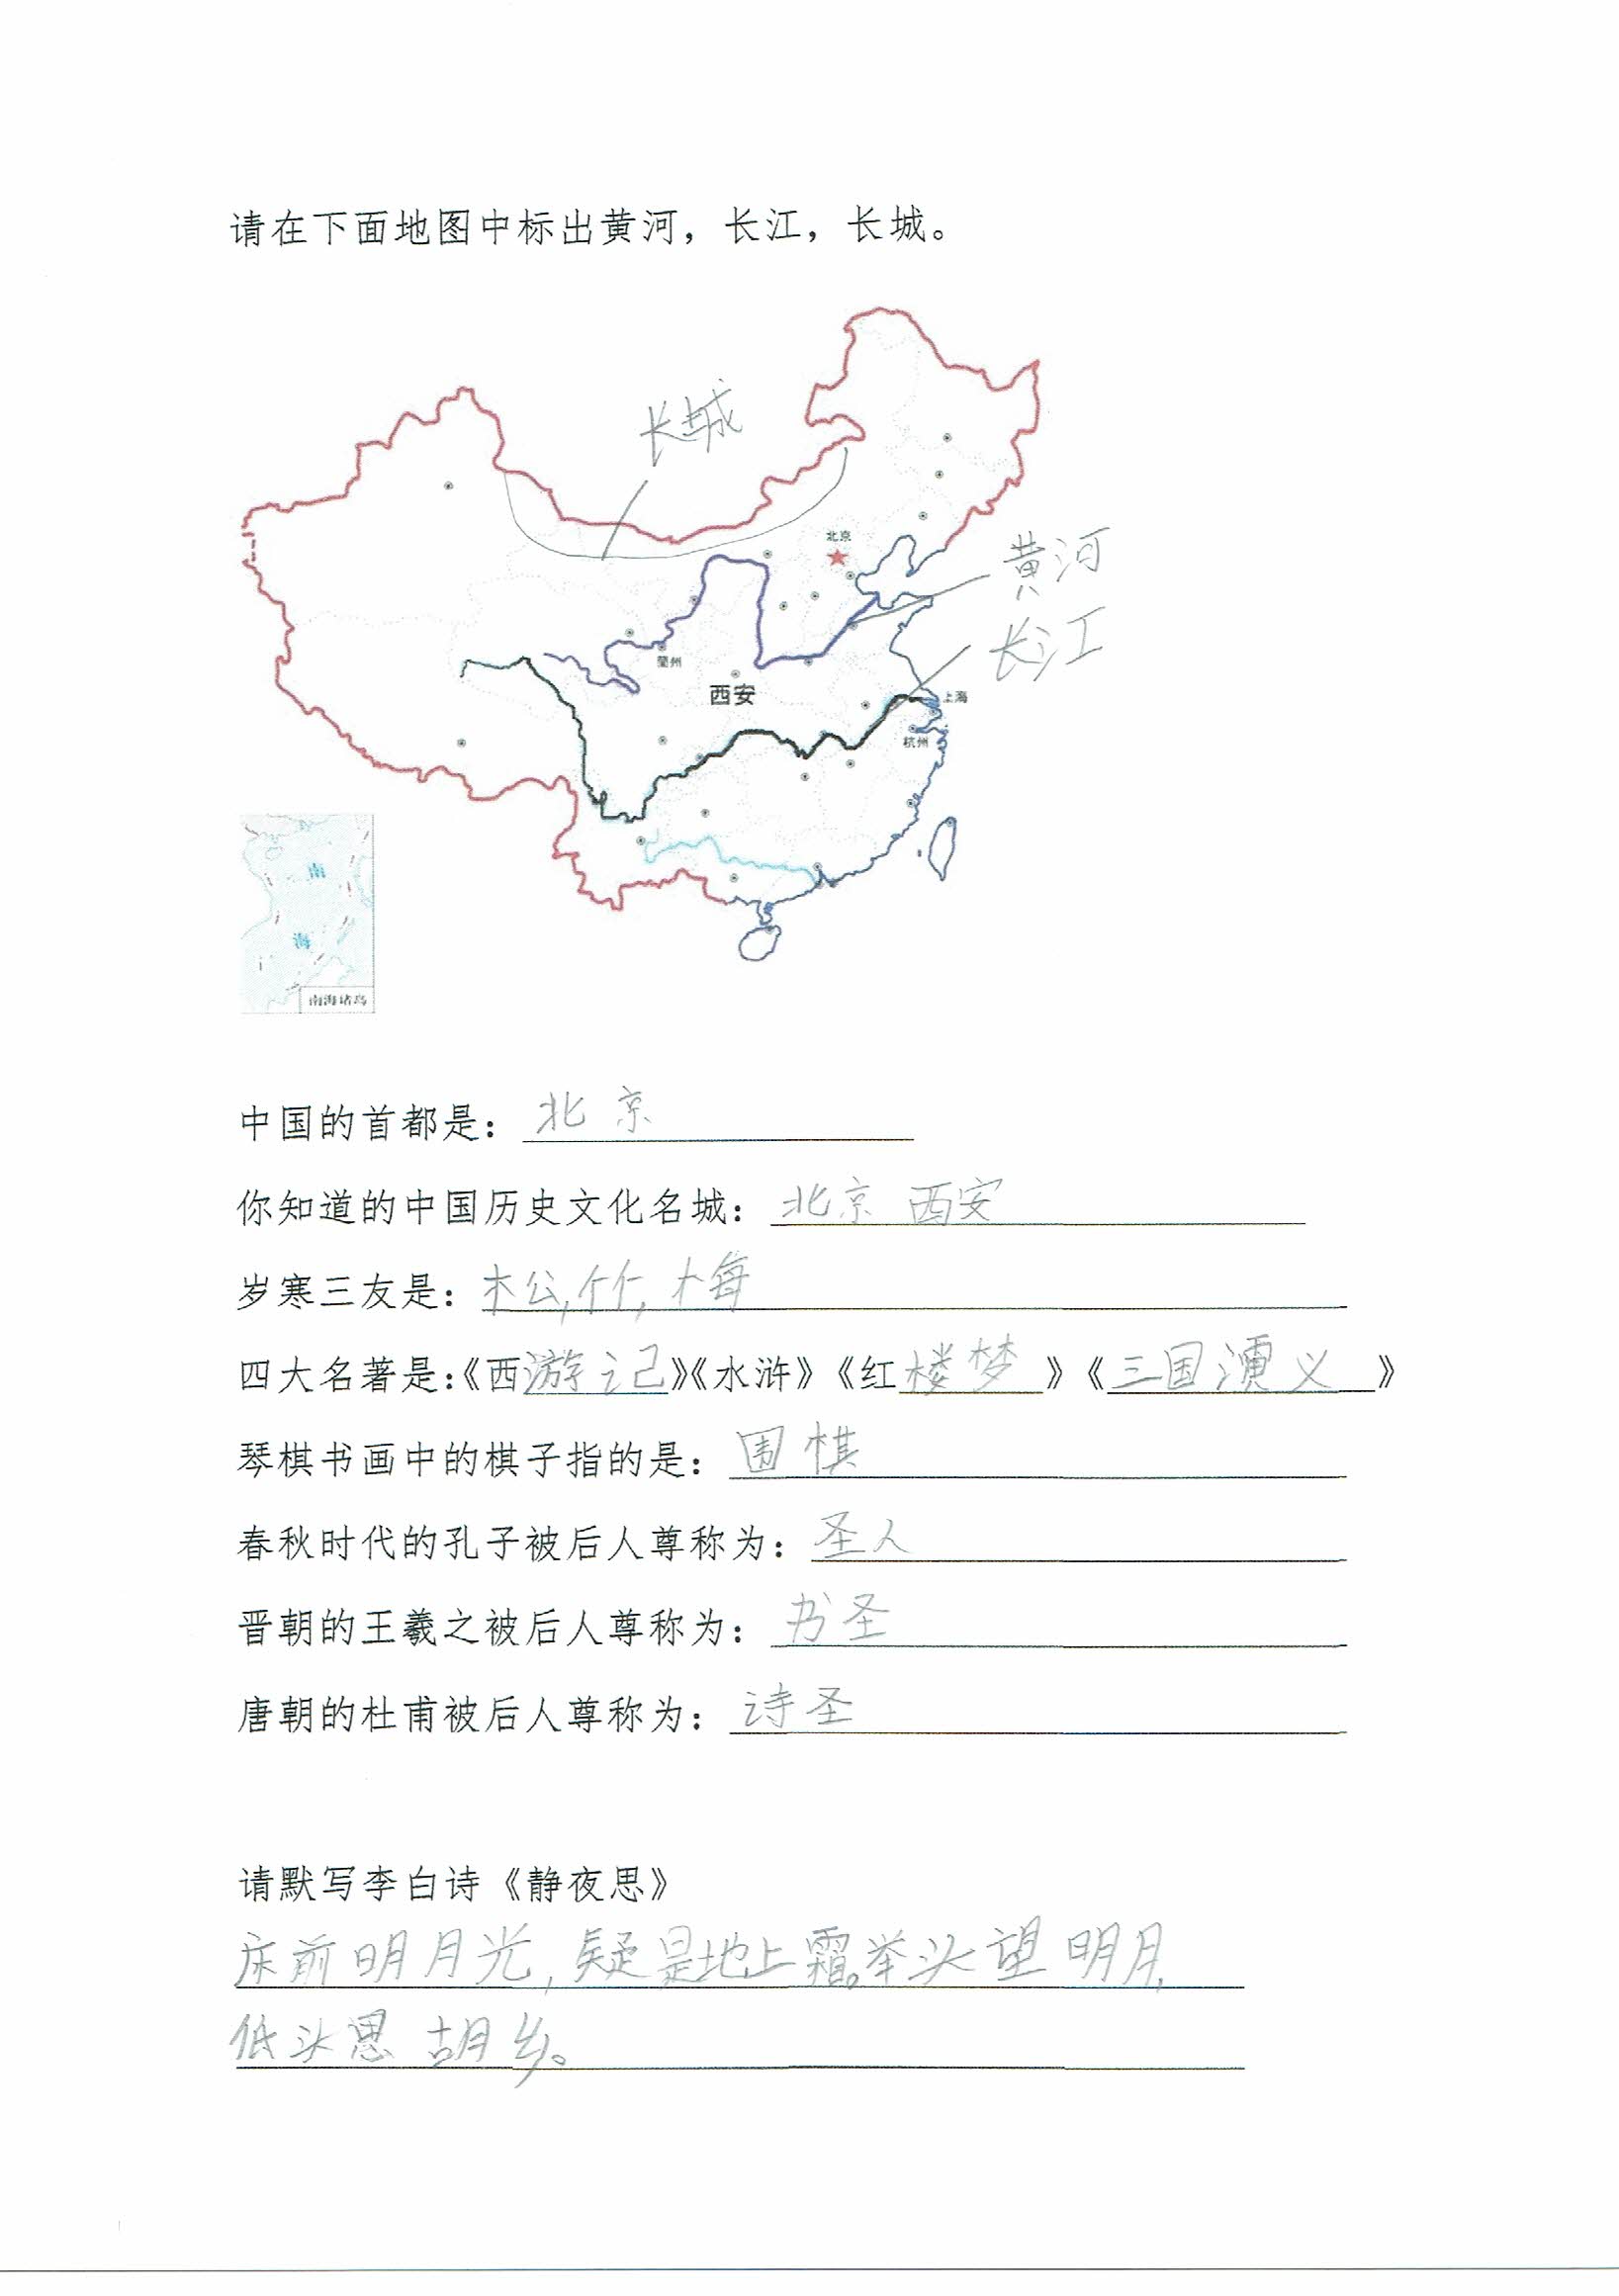 请在下面地图中标出黄河，长江，长城。
长城
北京
黄河
长江
蘭州
西安
上海
杭州
南
海
南海诸岛
中国的首都是：北京
你知道的中国历史文化名城：北京 西安
岁寒三友是：松,竹,梅
四大名著是:《西游记》《水浒》《红楼梦》《三国演义》
琴棋书画中的棋子指的是：围棋
春秋时代的孔子被后人尊称为：圣人
晋朝的王羲之被后人尊称为：书圣
唐朝的杜甫被后人尊称为：诗圣
请默写李白诗《静夜思》
床前明月光,疑是地上霜。举头望明月,
低头思胡乡。